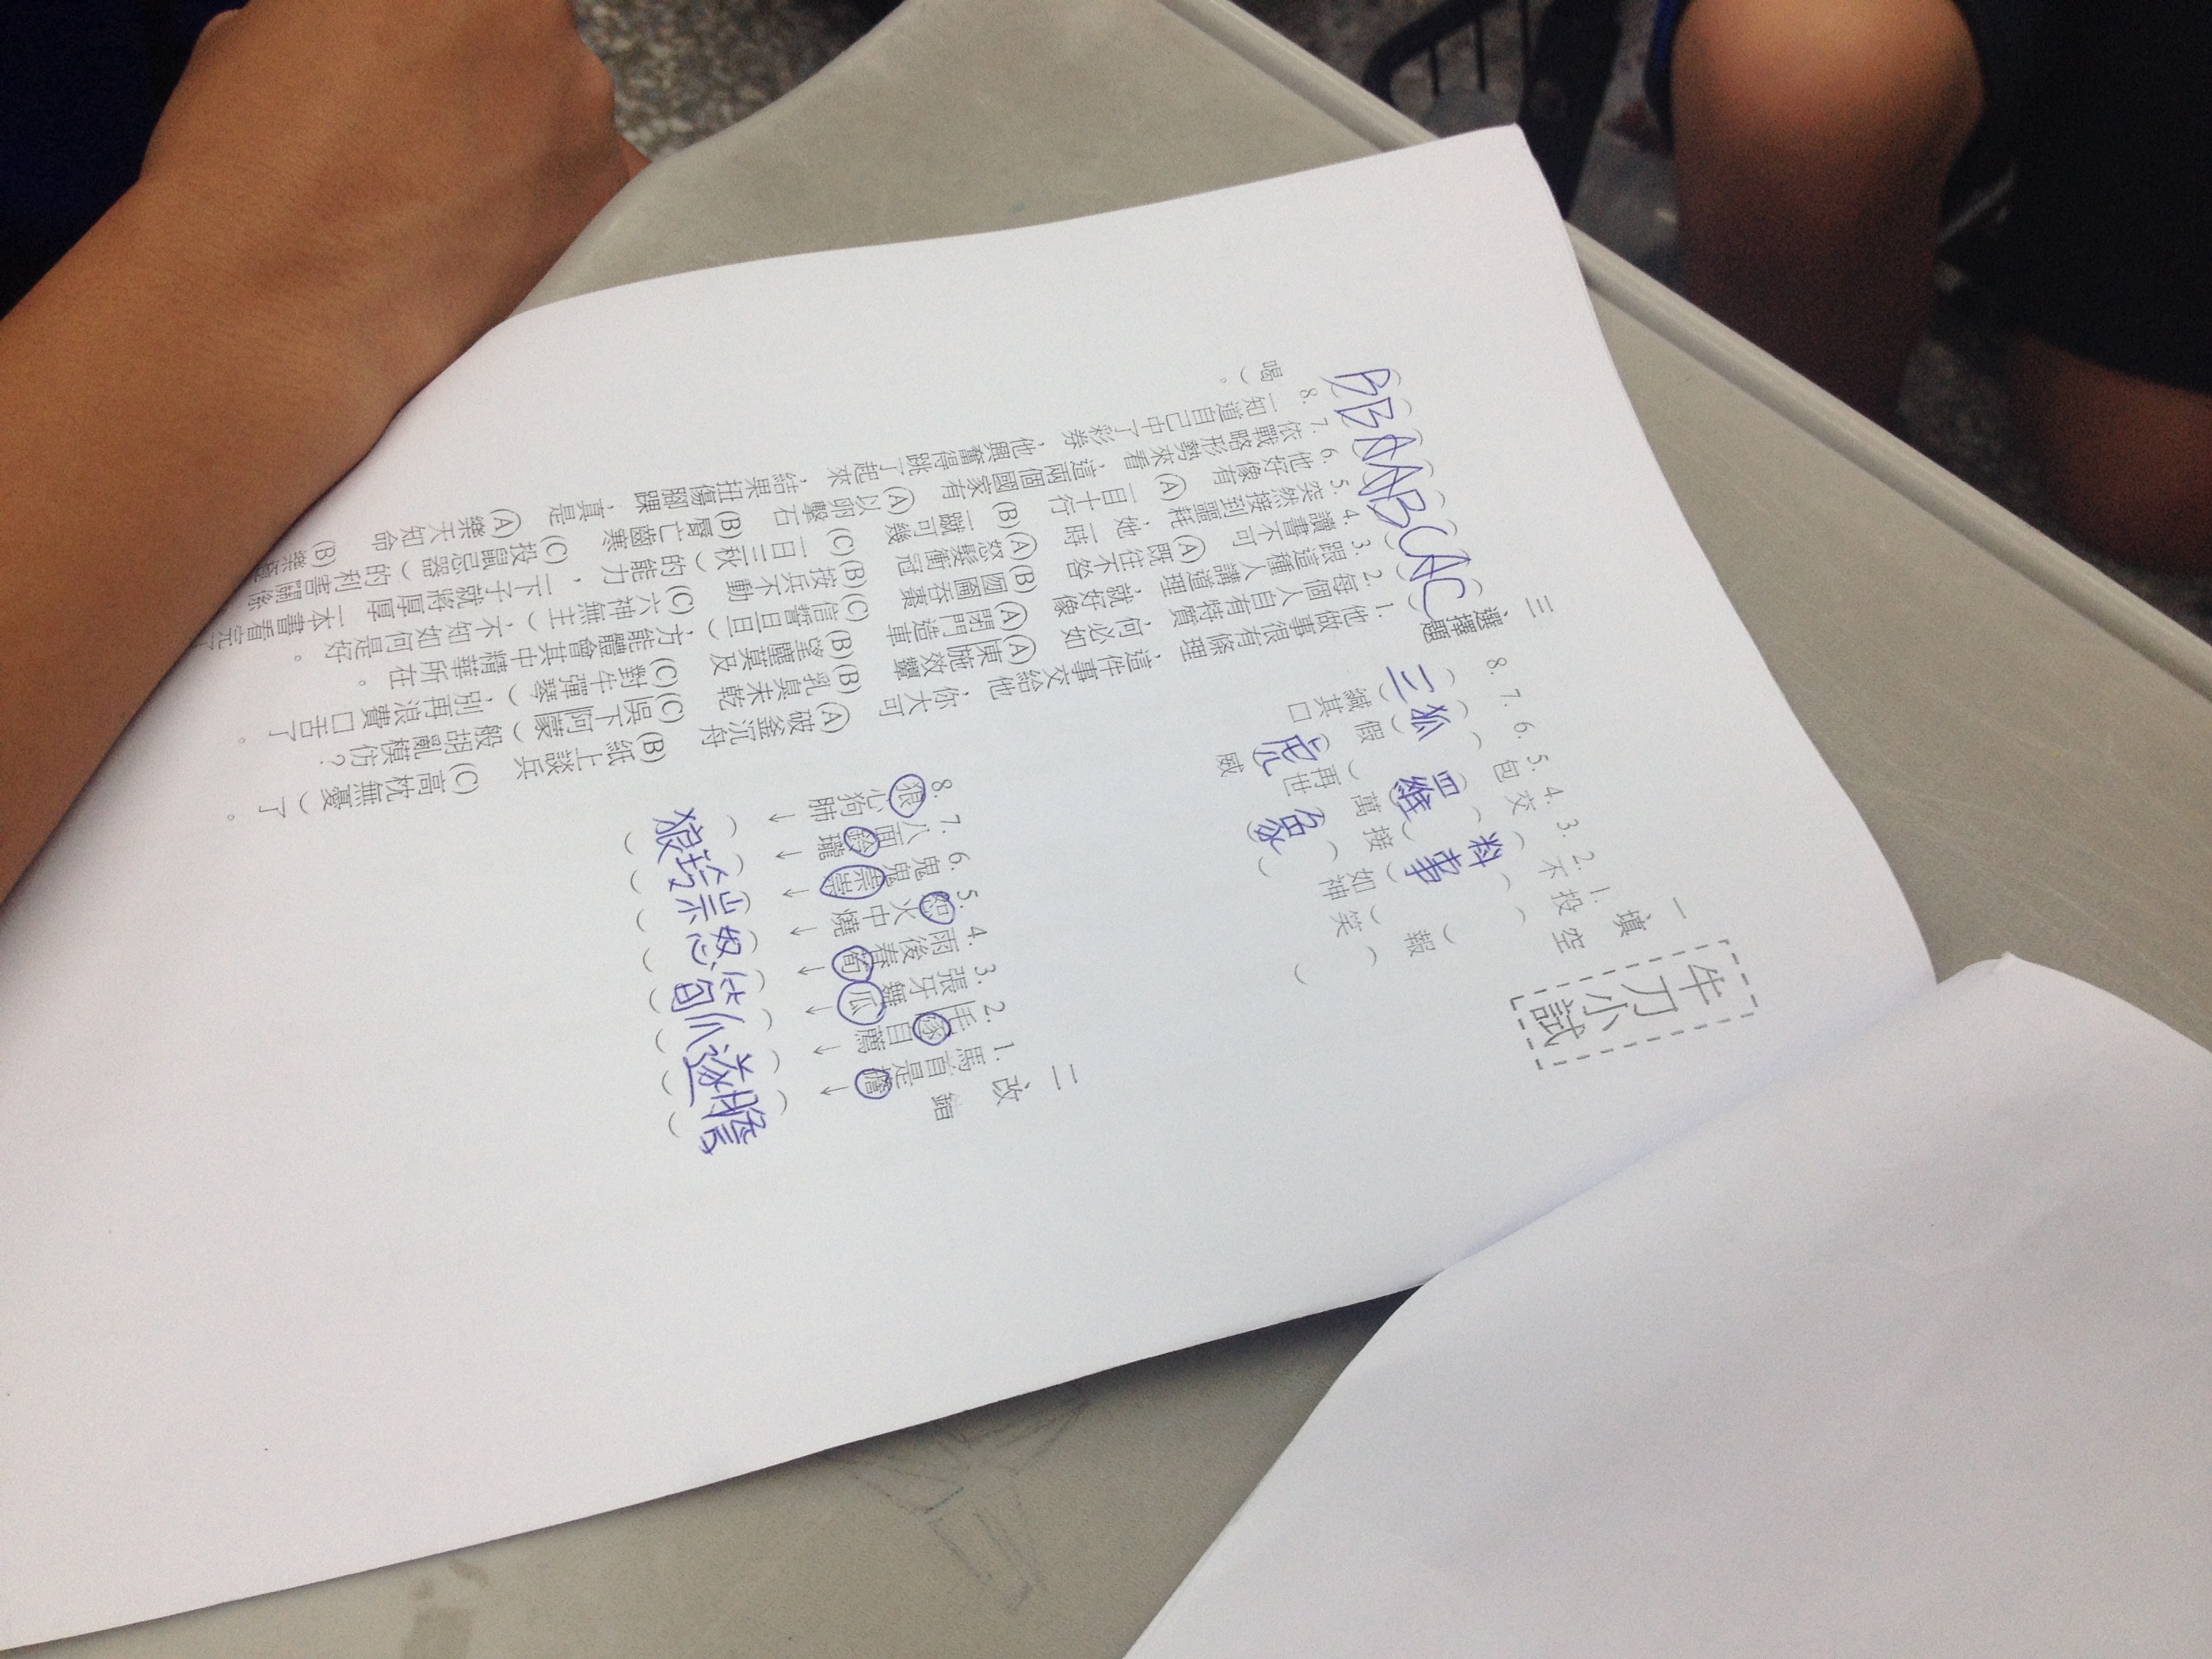 牛刀小試
一 填空
1. 投( )報( )
2. 不( )( )笑
3. (料)(事)如神
4. ( )交( )接
5. 包(羅)萬(象)
6. ( )( )再世
7. (狐)假(虎)威
8. (三)緘其口
二 改錯
1. 馬首是 → (瞻)
2. 自薦 → (遂)
3. 張牙舞瓜 → (爪)
4. 雨後春荀 → (筍)
5. 恕火中燒 → (怒)
6. 鬼鬼崇崇 → (祟)
7. 八面鈴瓏 → (玲)
8. 狠心狗肺 → (狼)
三 選擇題
(C) 1. 他做事很有條理,這件事交給他,你大可 (A)破釜沉舟 (B)紙上談兵 (C)高枕無憂)了。
(A) 2. 每個人自有特質,何必如 (A)東施效顰 (B)乳臭未乾 (C)吳下阿蒙)般胡亂模仿?
(C) 3. 跟這種人講道理,就好像 (A)閉門造車 (B)望塵莫及 (C)對牛彈琴),別再浪費口舌了。
(B) 4. 讀書不可 (A)既往不咎 (B)囫圇吞棗 (C)信誓旦旦),方能體會其中精華所在。
(A) 5. 突然接到噩耗,她一時 (A)怒髮衝冠 (B)按兵不動 (C)六神無主),不知如何是好。
(A) 6. 他好像有 (A)一目十行 (B)一蹴可幾 (C)一日三秋)的能力,一下子就將厚厚一本書看完了
(B) 7. 依戰略形勢來看,這兩個國家有 (A)以卵擊石 (B)脣亡齒寒 (C)投鼠忌器)的利害關係
(B) 8. 一知道自己中了彩券,他興奮得跳了起來,結果扭傷腳踝,真是 (A)樂天知命 (B)樂極
喝)。